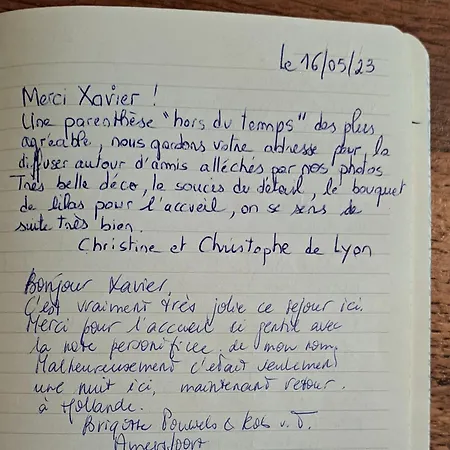 le 16/05/23
Merci Xavier !
Une parenthèse "hors du temps" des plus
agréable, nous gardons votre adresse pour la
diffuser autour d'amis alléchés par nos photos
Très belle déco, le soucis du détail, le bouquet
de lilas pour l'accueil, on se sens de
suite très bien.
Christine et Christophe de Lyon
Bonjour Xavier,
C'est vraiment très jolie ce sejour ici.
Merci pour l'accueil si gentil avec
la note personifice de mon nom.
Malheureusement c'etait seulement
une nuit ici, maintenant retour.
à Hollande.
Brigitte Pouwels & Rob v. D.
Amersfoort